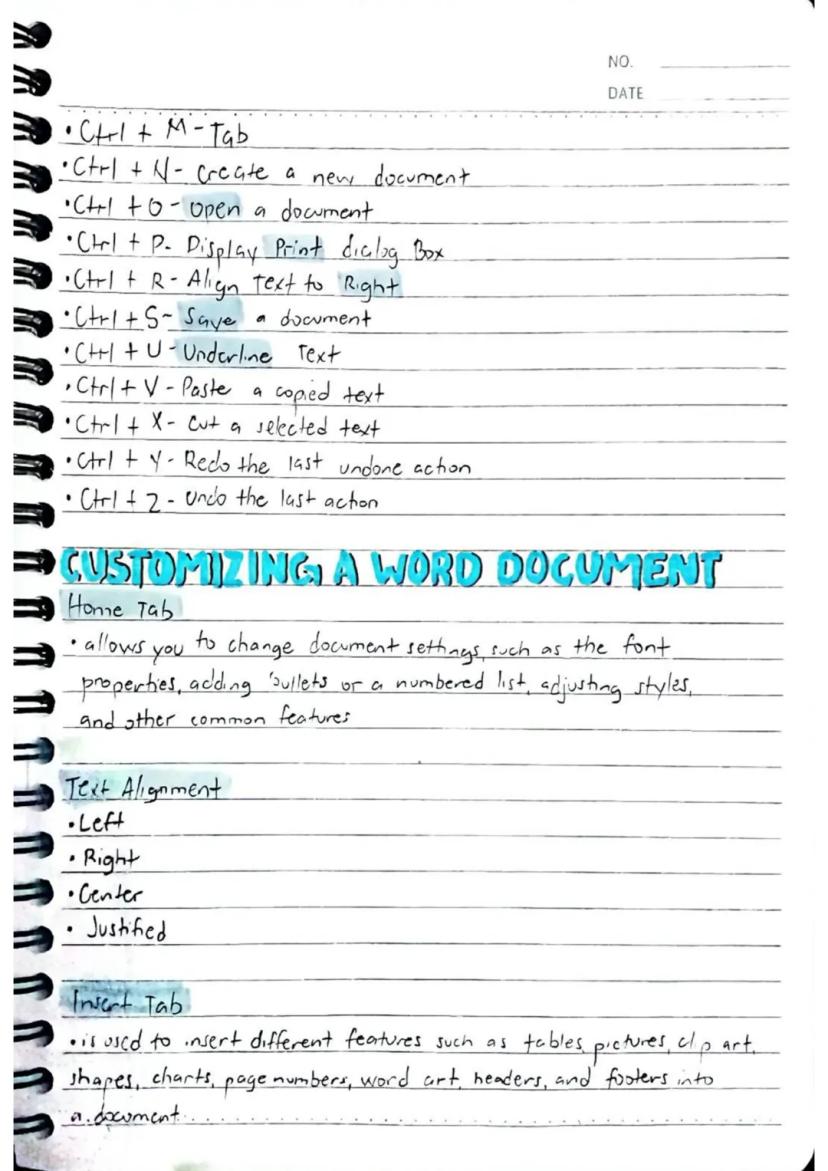 NO.
DATE
• Ctrl + M - Tab
• Ctrl + N - Create a new document
• Ctrl + O - Open a document
• Ctrl + P - Display Print dialog Box
• Ctrl + R - Align Text to Right
• Ctrl + S - Save a document
• Ctrl + U - Underline Text
• Ctrl + V - Paste a copied text
• Ctrl + X - Cut a selected text
• Ctrl + Y - Redo the last undone action
• Ctrl + Z - Undo the last action
CUSTOMIZING A WORD DOCUMENT
Home Tab
• allows you to change document settings, such as the font
properties, adding bullets or a numbered list, adjusting styles,
and other common features
Text Alignment
• Left
• Right
• Center
• Justified
Insert Tab
• is used to insert different features such as tables, pictures, clip art,
shapes, charts, page numbers, word art, headers, and footers into
a document